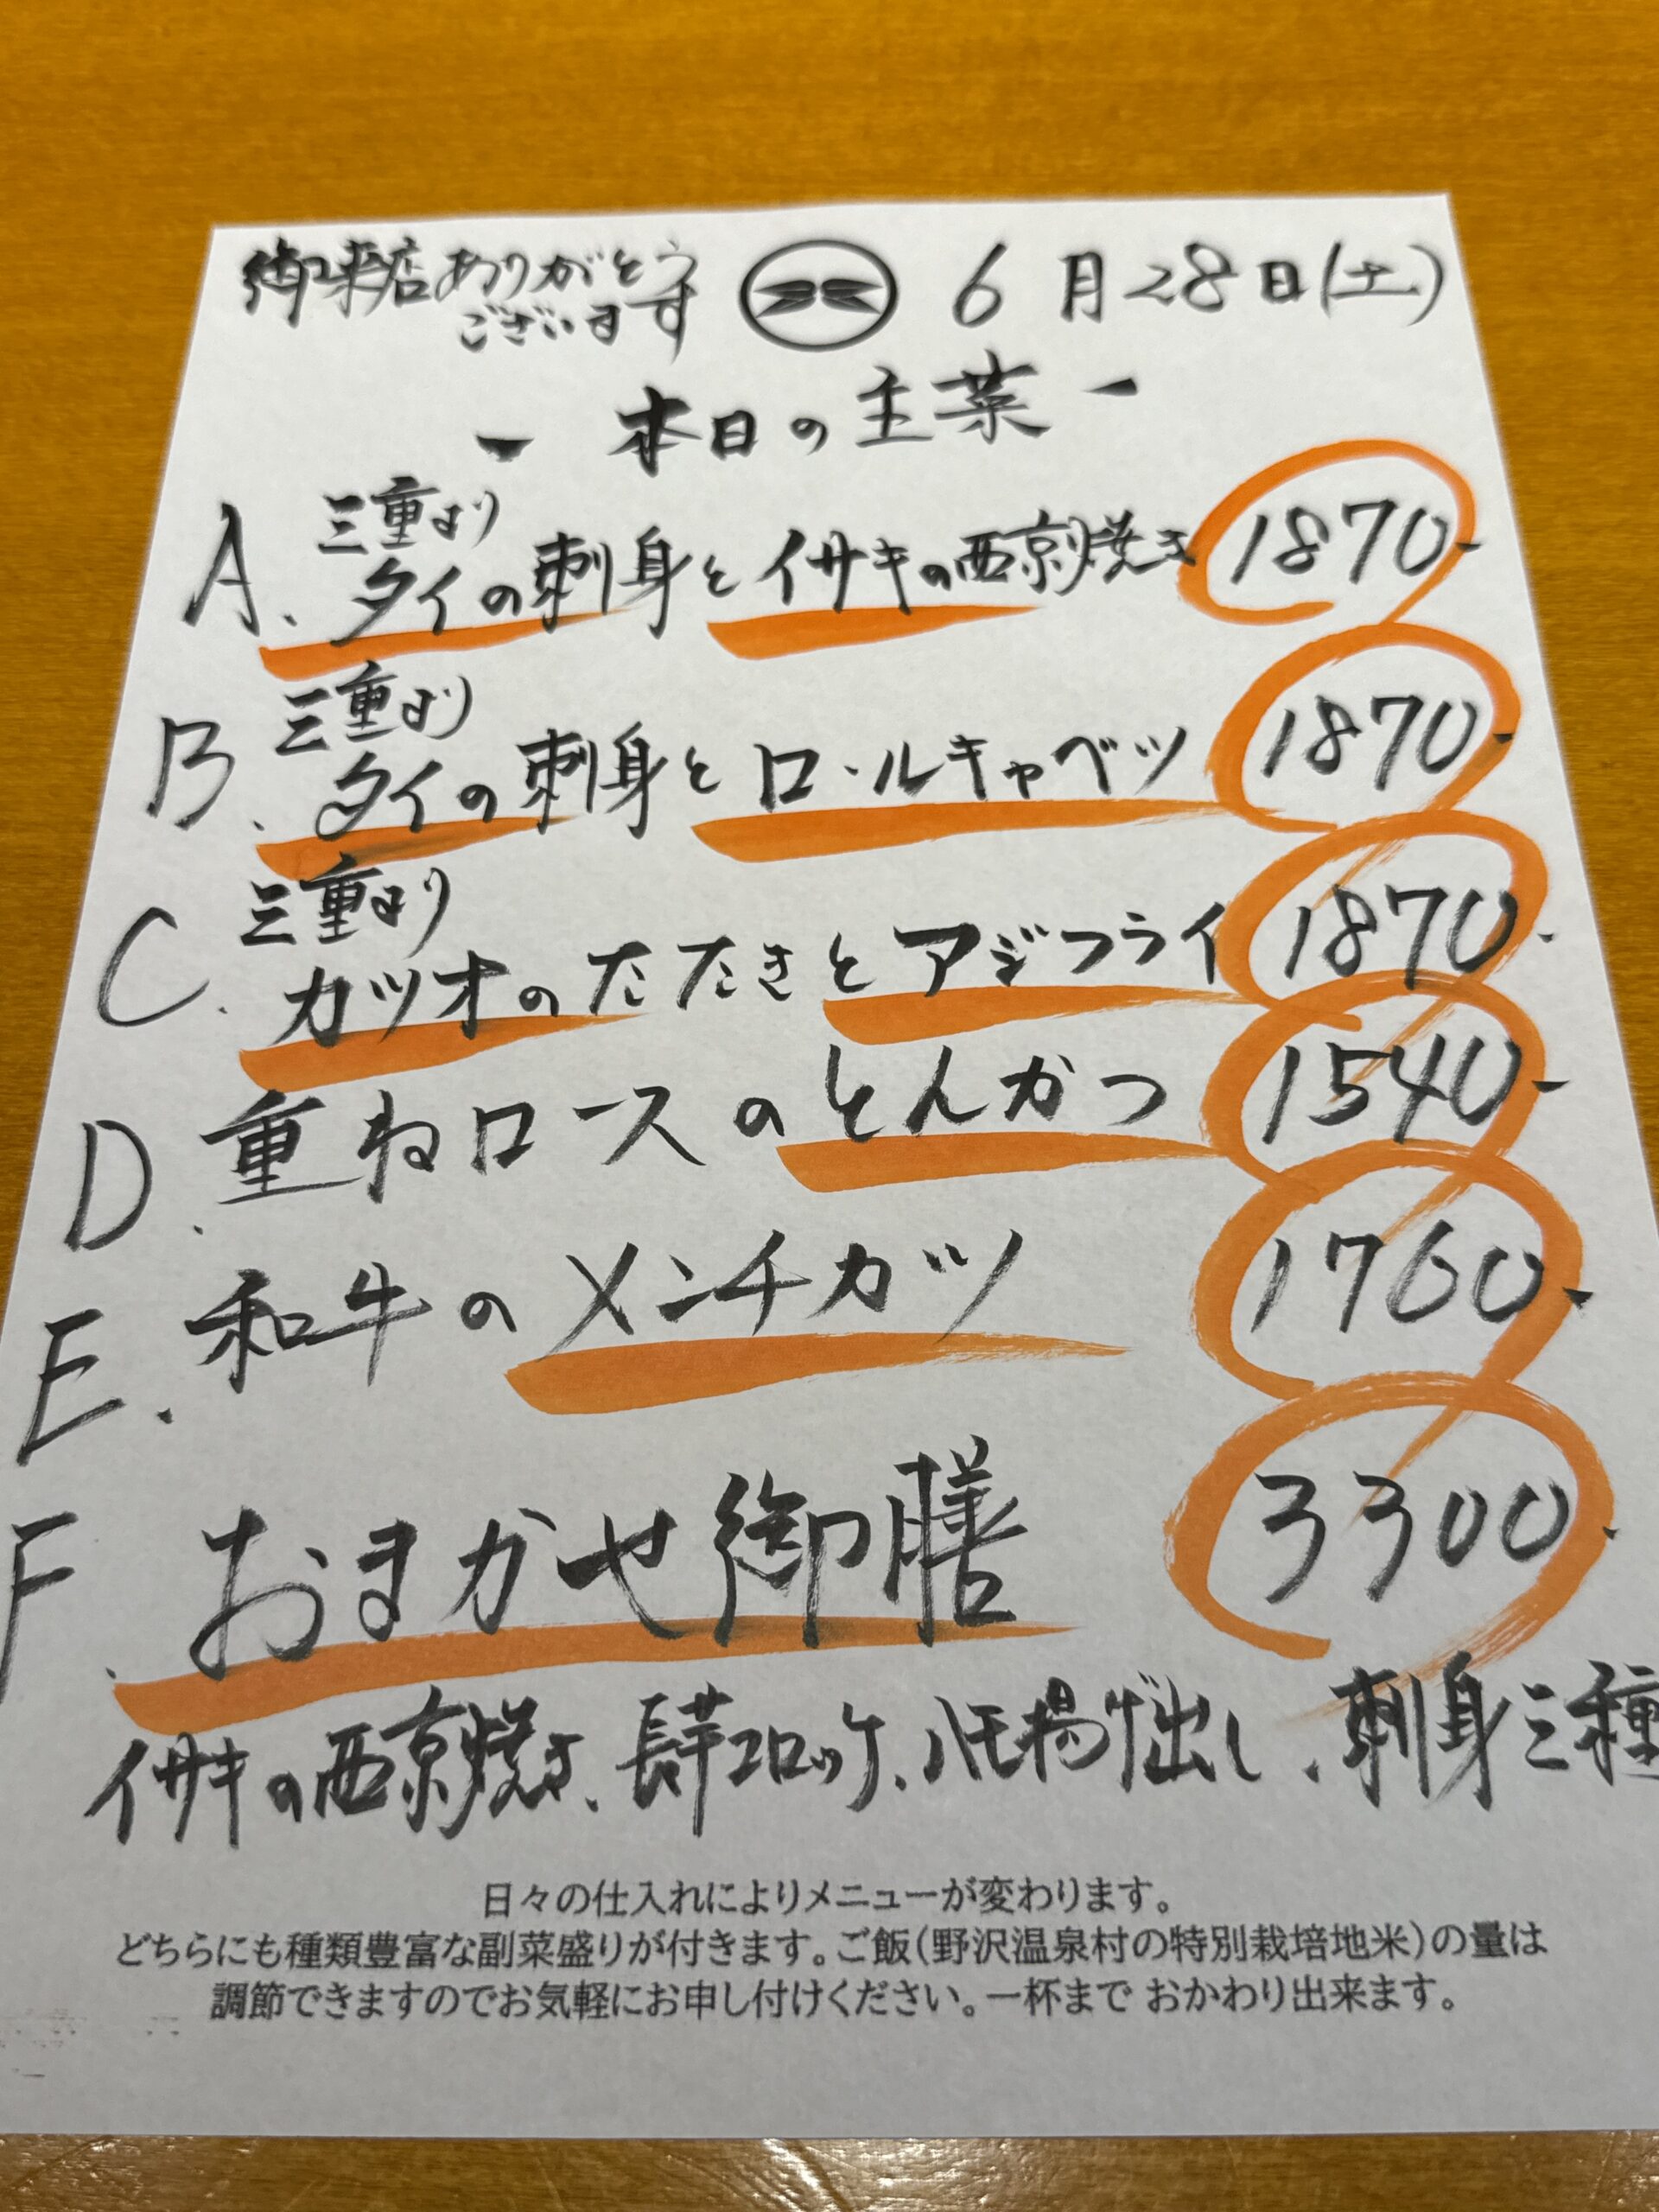 御来店ありがとう
ございます
6月28日(土)
- 本日の主菜 -
三重より
A. タイの刺身とイサキの西京焼き 1870-
三重より
B. タイの刺身とロールキャベツ 1870-
三重より
C. カツオのたたきとアジフライ 1870-
D. 重ねロースのとんかつ 1540-
E. 和牛のメンチカツ 1760-
F. おまかせ御膳 3300-
イサキの西京焼き、長芋コロッケ、ハモ揚げ出し、刺身三種
日々の仕入れによりメニューが変わります。
どちらにも種類豊富な副菜盛りが付きます。ご飯(野沢温泉村の特別栽培地米)の量は
調節できますのでお気軽にお申し付けください。一杯まで おかわり出来ます。